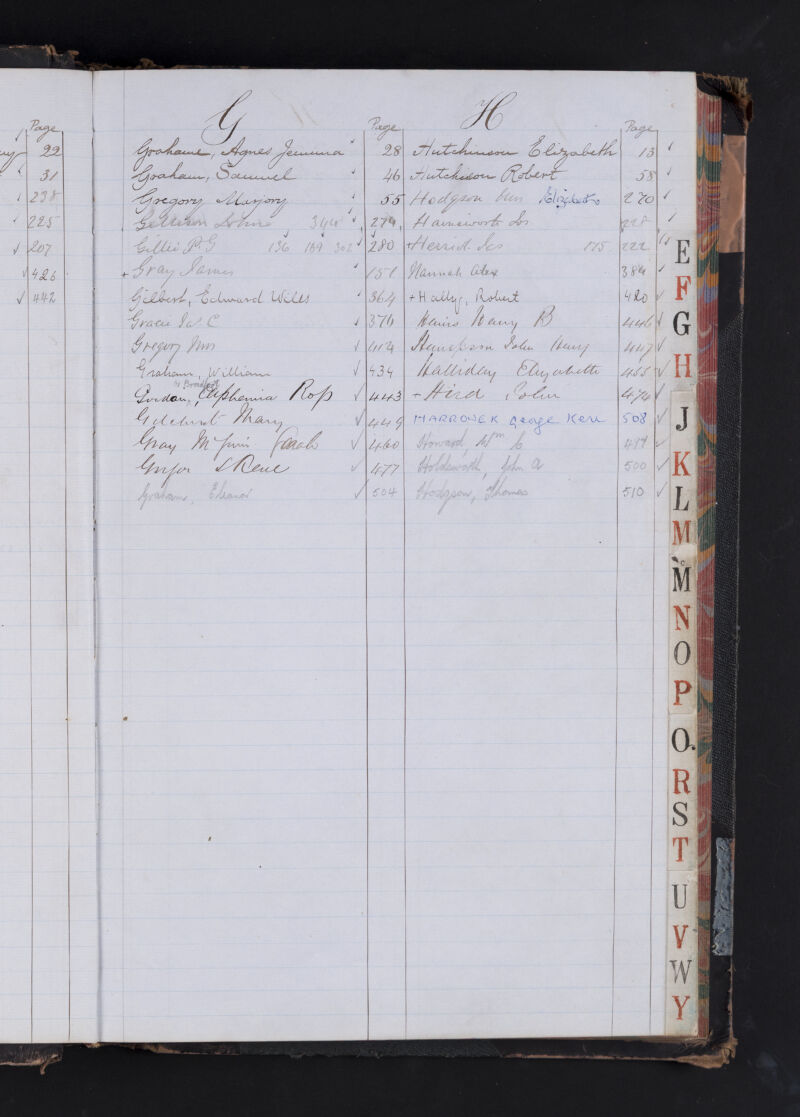 Page
22
31
238
225
207
426
442
G
Page
Grahame, Agnes Jemima 28
Graham, Samuel 46
Gregory Marjory 55
John 344 279
Gillie P G 136 189 302 280
+ Gray James 151
Gilbert, Edward Wills 364
Gracie Jas C 376
Gregory Mrs 414
Graham, William 434
Gordon, Euphemia Ross 443
Gilchrist Mary 449
Gray Sarah 460
477
Graham, Eleanor 504
H
Page
Hutchinson Elizabeth 13
Hutchison Robert 58
Hodgson Mrs Elizabeth 270
Hainsworth Js
+ Herriot Jas 175 222
Hannah Alex 384
+ Hally, Robert 420
Henry B 446
John Henry 447
Halliday Elizabeth 455
+ Hird John 474
George Kerr 508
Howard, Wm
Holdsworth, John A 500
Hodgson, Thomas 510
E
F
G
H
J
K
L
M
Mc
N
O
P
Q.
R
S
T
U
V
W
Y